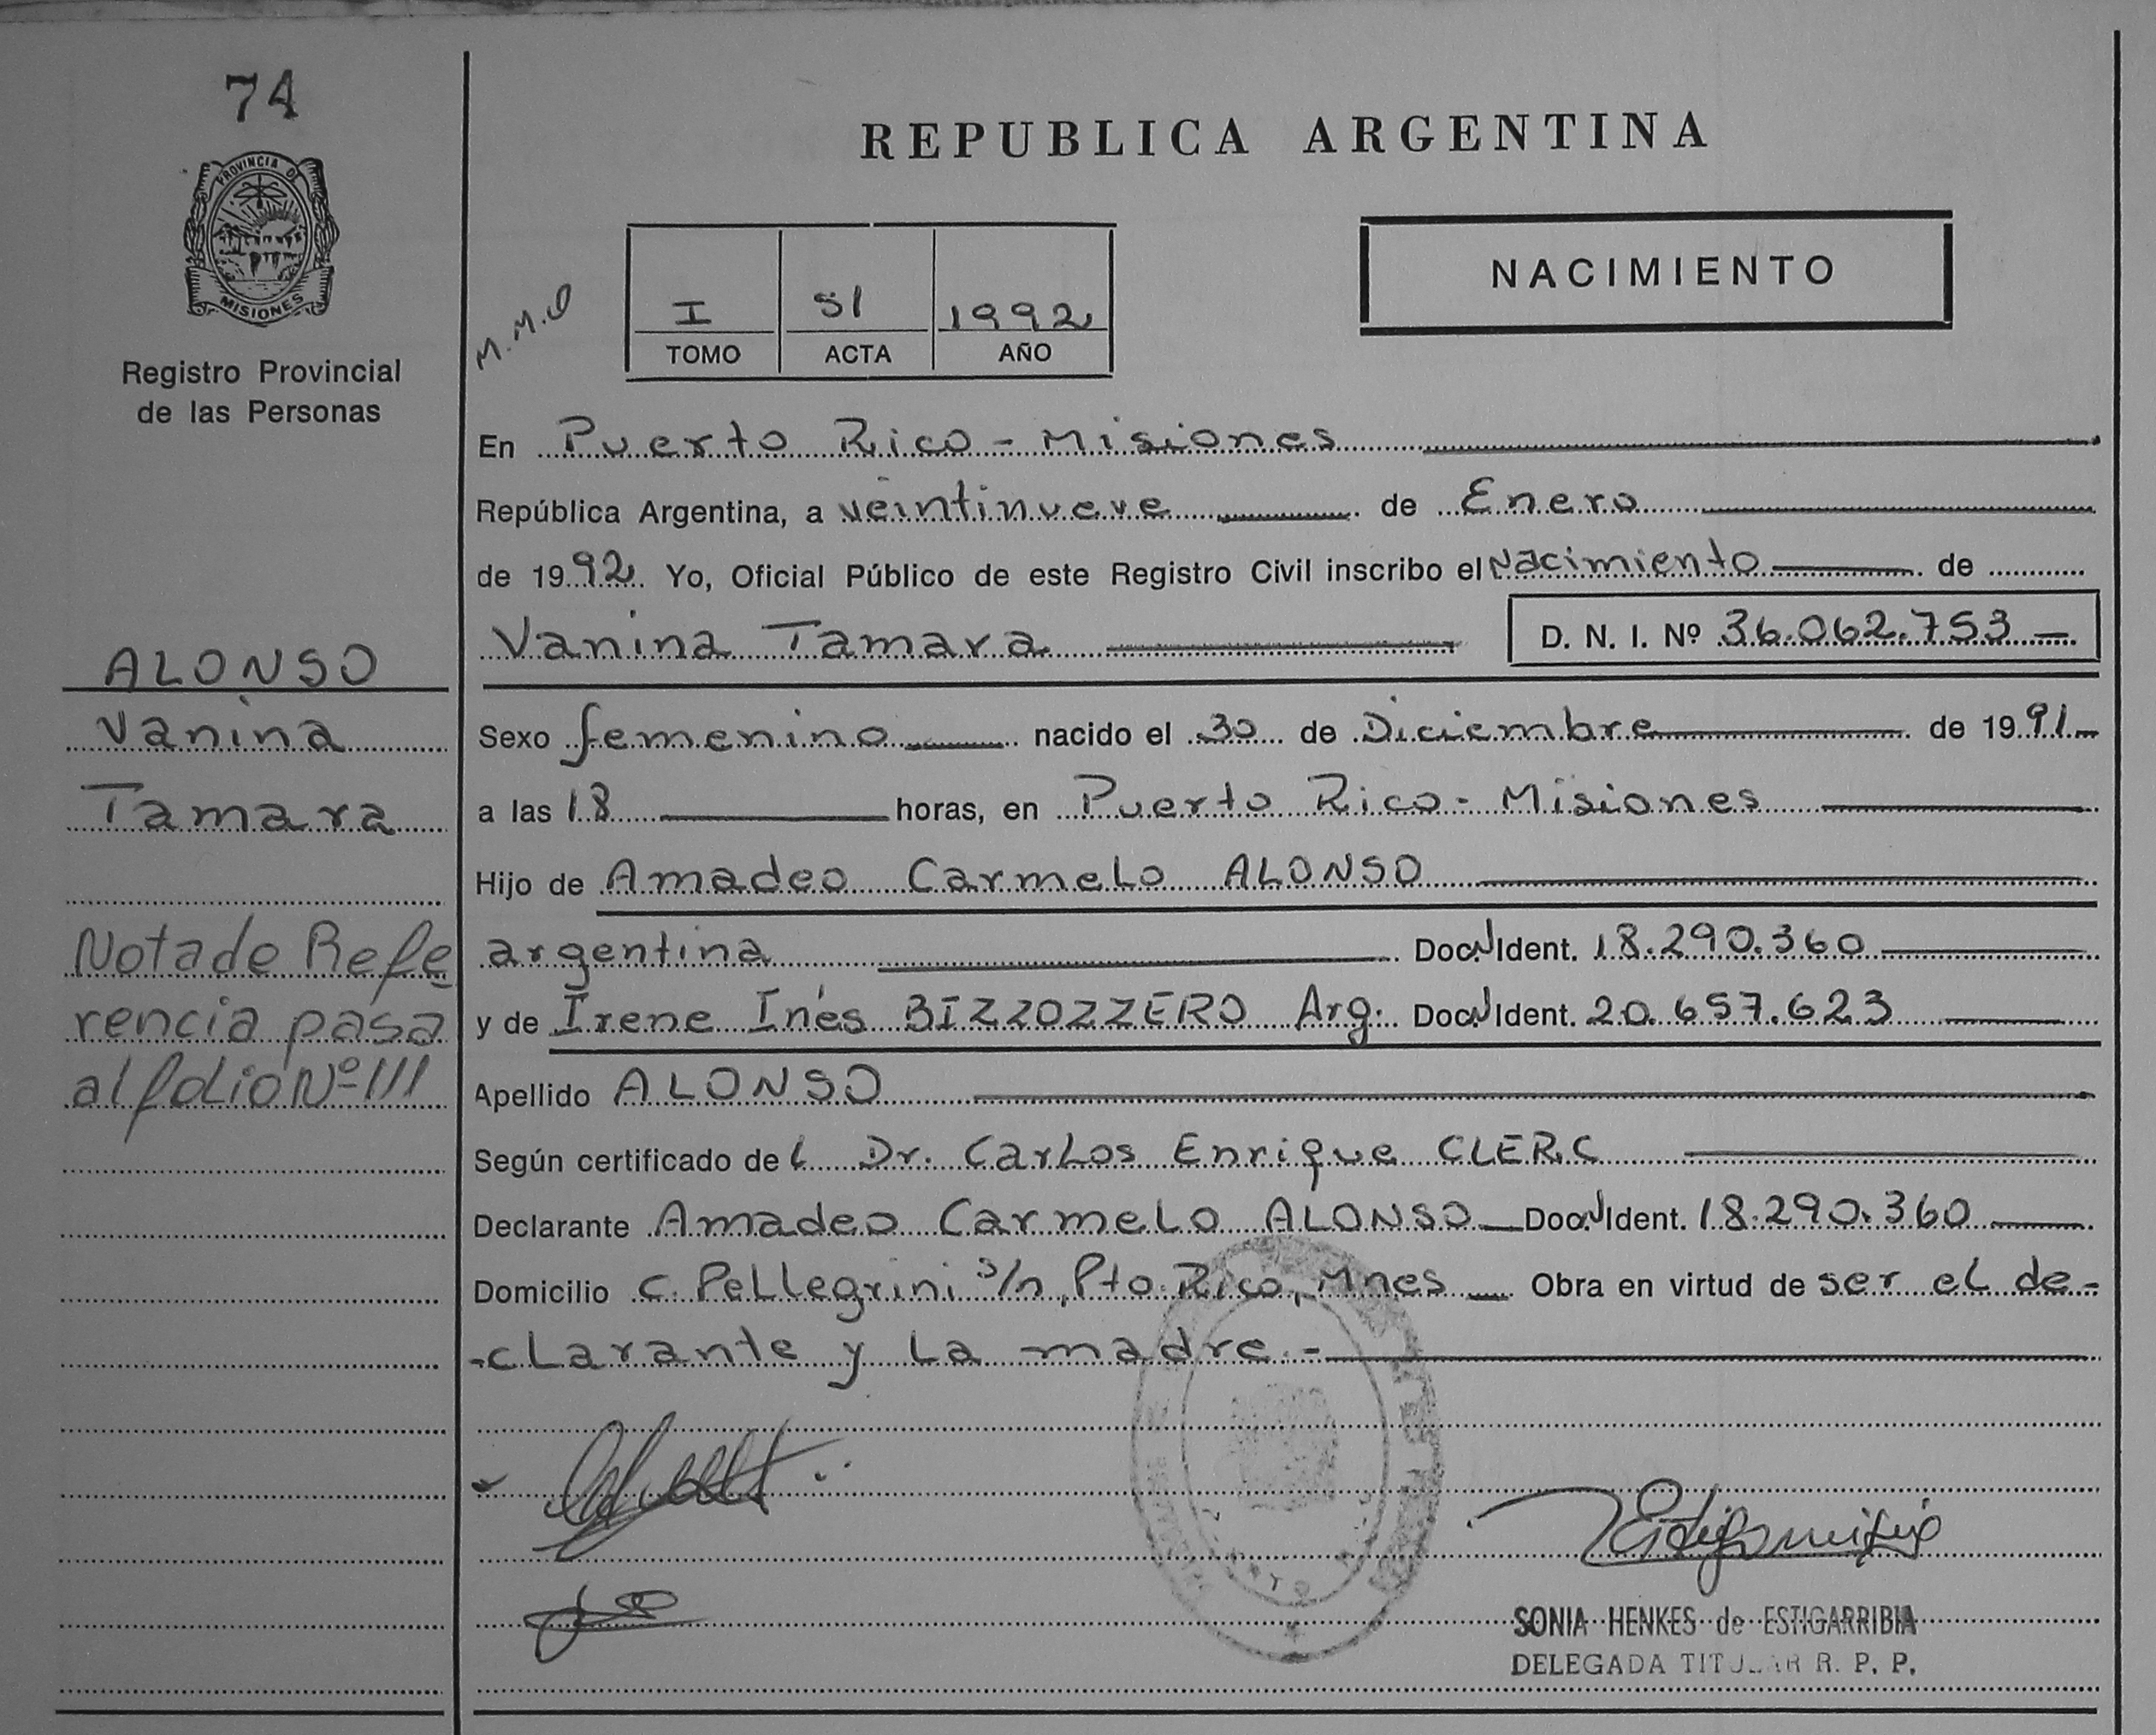 74
PROVINCIA D
MISIONES
Registro Provincial
de las Personas
ALONSO
Vanina
Tamara
Nota de Refe
rencia pasa
al folio Nº 111
REPUBLICA ARGENTINA
M.M.O
I 51 1992
TOMO ACTA AÑO
NACIMIENTO
En Puerto Rico - Misiones
República Argentina, a veintinueve de Enero
de 1992 Yo, Oficial Público de este Registro Civil inscribo el Nacimiento de
Vanina Tamara D. N. I. Nº 36.062.753 —
Sexo femenino nacido el 30 de Diciembre de 1991
a las 18 horas, en Puerto Rico - Misiones
Hijo de Amadeo Carmelo ALONSO
argentina Doc. Ident. 18.290.360
y de Irene Inés BIZZOZZERO Arg. Doc. Ident. 20.657.623
Apellido ALONSO
Según certificado del Dr. Carlos Enrique CLERC
Declarante Amadeo Carmelo ALONSO Doc. Ident. 18.290.360
Domicilio C. Pellegrini s/n, Pto. Rico, Mnes Obra en virtud de ser el de-
-clarante y la madre.-
SONIA HENKES de ESTIGARRIBIA
DELEGADA TITULAR R. P. P.